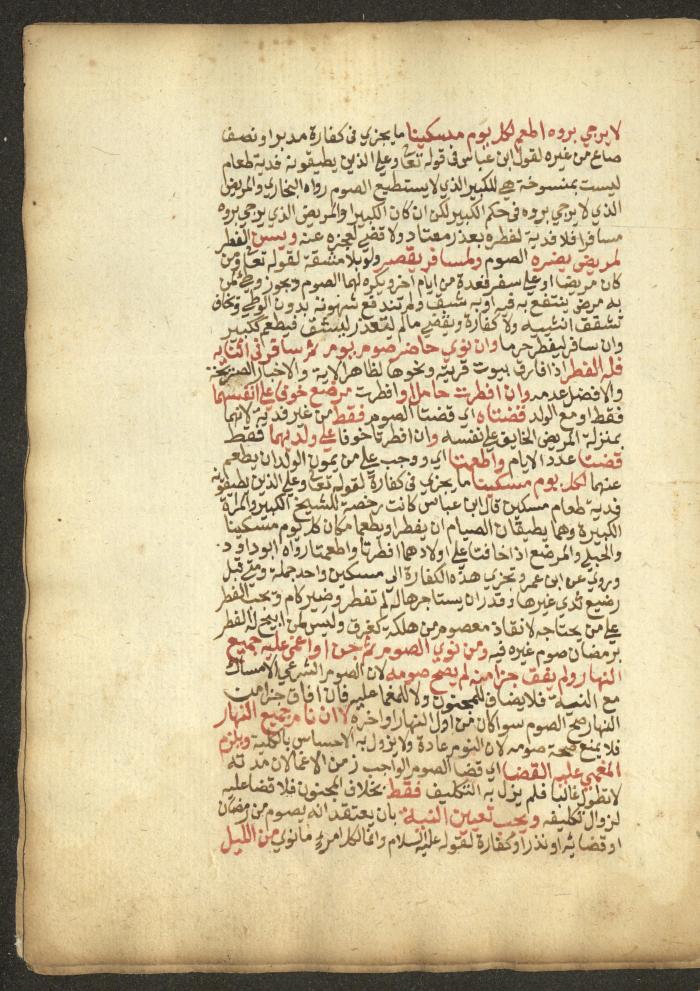 لا يرجي بروه اطعم لكل يوم مسكينا ما يجزي في كفارة مد بر او نصف
صاع من غيره لقول ابن عباس في قوله تعا وعلي الذين يطيقونه فدية طعام
ليست بمنسوخة هي للكبير الذي لا يستطيع الصوم رواه البخاري والمريض
الذي لا يرجي بروه في حكم الكبير لكن ان كان الكبير او المريض الذي يرجي بروه
مسافرا فلا فدية لفطره بعذر معتاد ولا قضي لعجزه عنه ويسن الفطر
لمريض يضره الصوم ولمسافر يقصر ولو بلا مشقة لقوله تعا ومن
كان مريضا او علي سفر فعدة من ايام اخر ويكره لهما الصوم ويجوز وطي لمن
به مرض ينتفع به فيه او به شبق ولم تندفع شهوته بدون الوطي ويخاف
تشقق انثييه ولا كفارة ويقضي ما لم يتعذر لشبق فيطعم ككبير
وان سافر ليفطر حرما وان نوي حاضر صوم يوم ثم سافر في اثنايه
فله الفطر اذا فارق بيوت قريته ونحوها لظاهر الاية والاخبار الصريحة
والافضل عدمه وان افطرت حامل او افطرت مرضع خوفا علي انفسهما
فقط او مع الولد قضتاه اي قضتا الصوم فقط من غير فدية لانهما
بمنزلة المريض الخايف علي نفسه وان افطرتا خوفا علي ولديهما فقط
قضتا عدد الايام واطعمتا اي ووجب علي من يمون الولد ان يطعم
عنهما لكل يوم مسكينا ما يجزي في كفارة لقوله تعا وعلي الذين يطيقونه
فدية طعام مسكين قال ابن عباس كانت رخصة للشيخ الكبير والمراة
الكبيرة وهما يطيقان الصيام ان يفطرا ويطعما مكان كل يوم مسكينا
والحبلي والمرضع اذا خافتا علي اولادهما افطرتا واطعمتا رواه ابو داود
وروي عن ابن عمر وتجزي هذه الكفارة الي مسكين واحد جملة ومتي قبل
رضيع ثدي غيرها وقدر ان يستاجر لها لم تفطر وضير كام ويجب الفطر
علي من يحتاجه لانقاذ معصوم من هلكة كغرق وليس لمن ابيح له الفطر
برمضان صوم غيره فيه ومن نوي الصوم ثم جن او اغمي عليه جميع
النهار ولم يفق جزا منه لم يصح صومه لان الصوم الشرعي الامساك
مع النية فلا يضاف للمجنون ولا للمغما عليه فان افاق جزا من
النهار صح الصوم سوا كان من اول النهار او اخره لا ان نام جميع النهار
فلا يمنع صحة صومه لان النوم عادة ولا يزول به الاحساس بالكلية ويلزم
المغمي عليه القضا اي قضا الصوم الواجب زمن الاغما لان مدته
لا تطول غالبا فلم يزل به التكليف فقط بخلاف المجنون فلا قضا عليه
لزوال تكليفه ويجب تعيين النية بان يعتقد انه يصوم من رمضان
او قضايه او نذر او كفارة لقوله عليه السلام وانما لكل امرء ما نوي من الليل